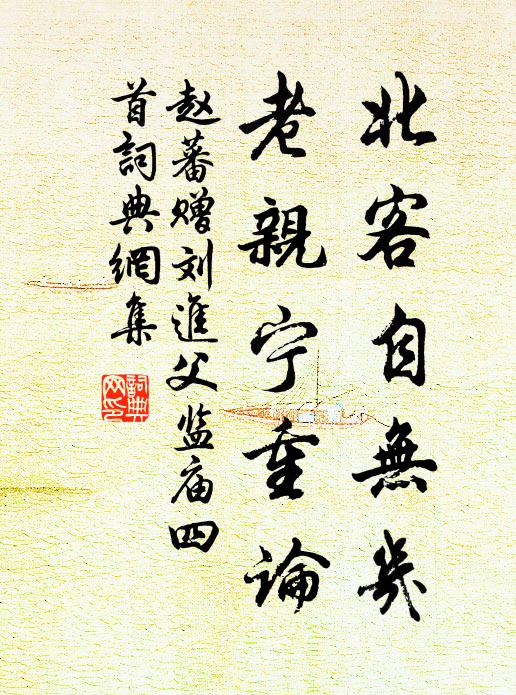 北客自無幾
老親宁重論
赵蕃赠刘進父监庙四
首詞典網集
詞典
网印